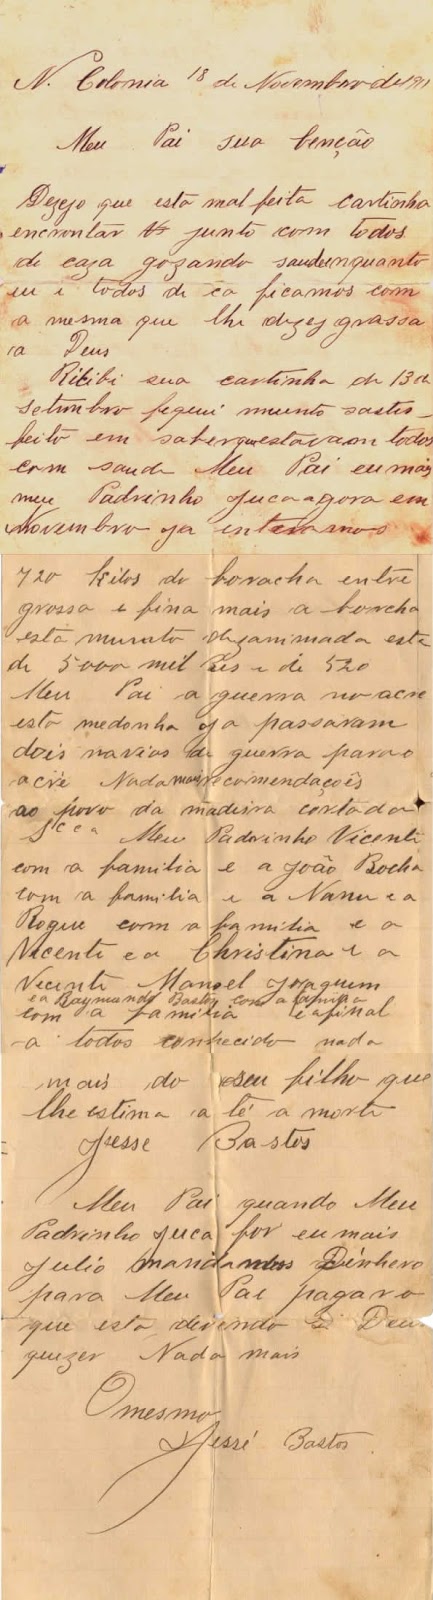 N. Colonia 18 de Novembro de 191
Meu Pai sua benção
Dezejo que esta mal feita cartinha
encrontar Vs junto com todos
de caza gozando saude enquanto
eu e todos de ca ficamos com
a mesma que lhe dezejo grassa
a Deus
Ricibi sua cartinha de 13 de
Setembro fequei munto sastes-
feito em saber que estavam todos
com saude Meu Pai eu mais
meu Padrinho Juca agora em
Novembro ja inteiramos
720 kilos do boracha entre
grossa e fina mais a borcha
esta munto dezanimada esta
de 5000 mil Reis e de 520
Meu Pai a guerra no acre
esta medonha ja passaram
dois navios de guerra para o
acre Nada mais recomendaçoes
ao povo da madeira cortada
Meu Padrinho Vicente
com a familia e a João Rocha
com a familia e a Nanu e a
Roque com a familia e a
Vicente e a Christina e a
Vecente Manoel Joaquem
e a Raymundo Bastos com a familia
com a familia e afinal
a todos conhecido nada
mais do seu filho que
lhe estima a té a morte
Jesse Bastos
Meu Pai quando Meu
Padrinho Juca for eu mais
Julio mandamos Dinhero
para Meu Pai pagar o
que esta devendo Si Deus
quezer Nada mais
O mesmo
Jessé Bastos